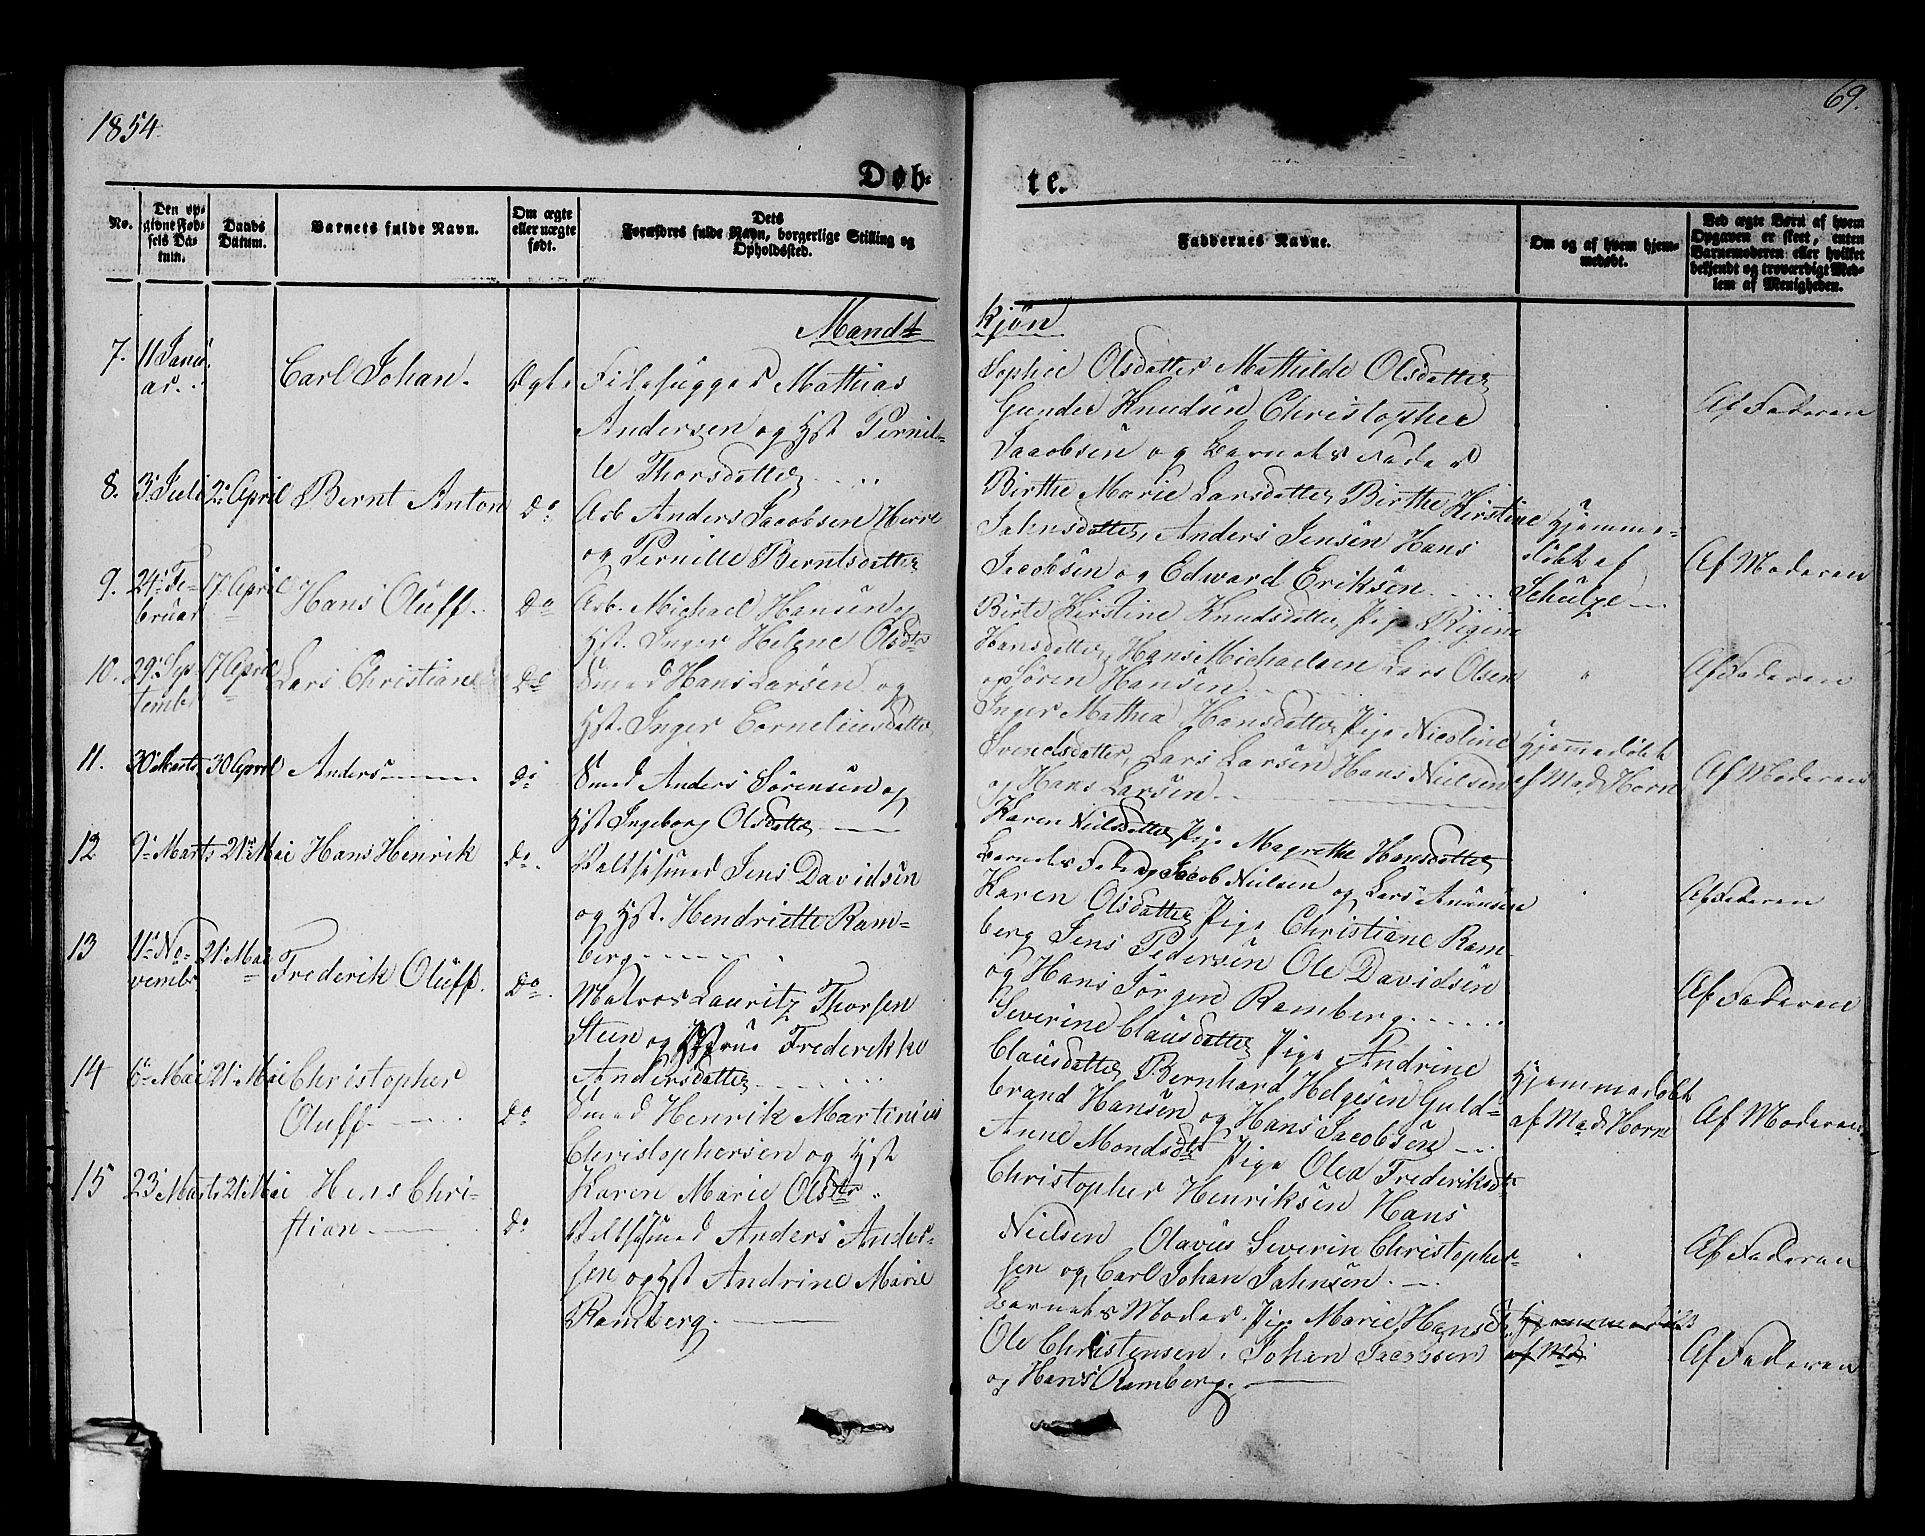 1854.
69.
Døb-
te.
No.
Den op-
givne Fød-
sels Da-
tum.
Daabs
Datum.
Barnets fulde Navn.
Om ægte
eller uægte
født.
Dets
Forældres fulde Navn, borgerlige Stilling og
Opholdssted.
Faddernes Navne.
Om og af hvem hjem-
medøbt.
Ved ægte Børn af hvem
Opgaven er skeet, enten
Barnemoderen eller hvilket
bekjendt og troværdigt Med-
lem af Menigheden.
Mandt
Kjön
7. 11 Janu
ar.
Carl Johan.
Ægt.
Filehugger Mathias
Andersen og Hst Pernil-
le Thorsdatter
Sophie Olsdatter Mathilde Olsdatter
Gunder Knudsen Christopher
Jacobsen og Barnets Fader
Af Faderen
8. 3 Juli 2 April Bernt Anton
Do
Arb Anders Jacobsen Herre
og Pernille Berntsdatter
Birthe Marie Larsdatter Birthe Kirstine
Jahnsdatter, Anders Jensen Hans
Jacobsen og Edward Eriksen
Hjemme-
døbt af
Schulze
Af Moderen
9. 24 Fe-
bruar
17 April Hans Oluff.
Do
Arb. Michael Hansen og
Hst. Inger Helene Olsdtr
Birte Kirstine Knudsdatter, Pige Regine
Hansdatter, Hans Michaelsen Lars Olsen
og Søren Hansen
Af Faderen
10. 29 Sep
temb
17 April Lars Christian
Do
Smed Hans Larsen og
Hst. Inger Corneliusdatter
Inger Mathea Hansdatter, Pige Nicoline
Svendsdatter, Lars Larsen Hans Nielsen
og Hans Larsen
Hjemmedøbt
af Mad Horn
Af Moderen
11. 30 Marts 30 April Anders
Do
Smed Anders Sörensen og
Hst Ingeborg Olsdatter
Karen Nielsdatter Pige Magrethe Hansdatter
Barnets Fader Jacob Nielsen og Lars
Af Faderen
12 9 Marts 21 Mai Hans Henrik
Do.
Valtsesmed Jens Davidsen
og Hst. Hendriette Ram-
berg
Karen Olsdatter Pige Christiane Ram-
berg Jens Pedersen Ole Davidsen
og Hans Jörgen Ramberg
Af Faderen
13 11 No-
vemb
21 Mai Frederik Oluff.
Do
Matros Lauritz Thorsen
Steen og Hstrue Frederikke
Andersdatter
Severine Clausdatter Pige Andrine
Clausdatter Bernhard Helgesen Guld-
brand Hansen og Hans Jacobsen
Hjemmedøbt
af Mad Horn
Af Moderen
14 6 Mai 21 Mai Christopher
Oluff.
Do
Smed Henrik Martinius
Christophersen og Hst
Karen Marie Olsdtr
Anne Mondsdtr Pige Olea Frederiksdtr
Christopher Henriksen Hans
Nielsen Olavus Severin Christopher-
sen og Carl Johan Jahnsen.
Af Faderen
15 23 Marts 21 Mai Hans Chri-
stian
Do
Valtsesmed Anders Ander-
sen og Hst Andrine Marie
Ramberg.
Barnets Moder. Pige Marie Hansdtr
Ole Christensen. Johan Jacobsen
og Hans Ramberg.
af Md.
Af Faderen